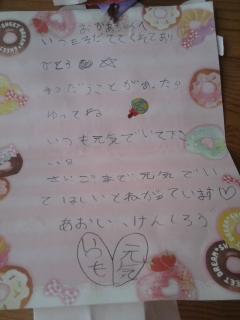 おかあさんへ
いつもそだててくれてあり
がとう
てつだうことがあったら
ゆってね
いつも元気でいて下さ
い
さいごまで元気でい
てほしいと私がっています
あおい、けんしろう
いつも
元気
SWEET DREAM
SWEET DREAM